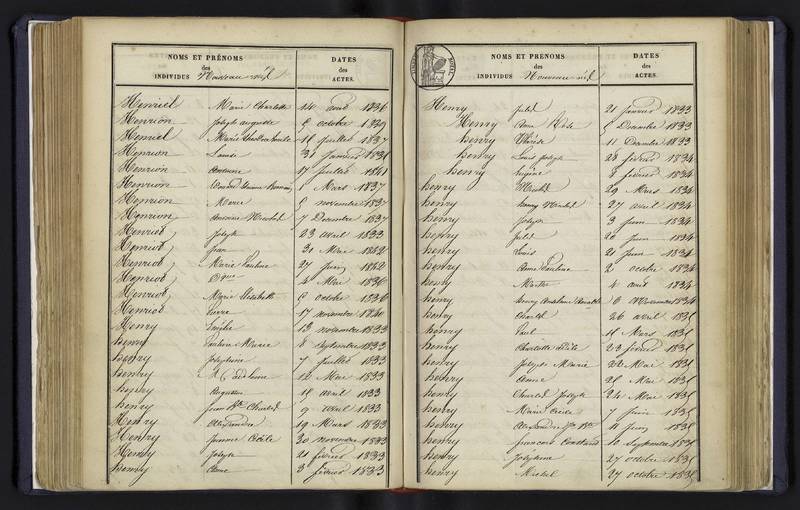 NOMS ET PRÉNOMS
des
INDIVIDUS
DATES
des
ACTES.
Henriel Marie Charlotte 14 avril 1836
Henrion Joseph auguste 9 octobre 1839
Henriel Marie 18 juillet 1837
Henrion Louise 31 janvier 1838
Henrion 17 juillet 1841
Henrion 1 Mars 1837
Henrion Marie 9 novembre 1837
Henrion Antoine Michel 7 Decembre 1837
Henriot Joseph 23 avril 1833
Henriot Jean 30 Mai 1842
Henriot Marie Pauline 27 juin 1842
Henriot 4 Mai 1836
Henriot Marie Elisabeth 9 octobre 1836
Henriot Pierre 17 novembre 1840
Henry 13 novembre 1833
henry Pauline Marie 8 septembre 1833
henry Joséphine 7 juillet 1833
henry 12 Mai 1833
henry Augustin 18 avril 1833
henry Jean Bte Charles 9 avril 1833
Henry Alexandre 19 Mars 1833
Henry Jeanne Cécile 30 novembre 1833
Henry Joseph 21 février 1833
henry Anne 3 février 1833
NOMS ET PRÉNOMS
des
INDIVIDUS Nouveau-né
DATES
des
ACTES.
Henry Jules 21 janvier 1833
Henry Anne Rose 5 Decembre 1833
henry Thérèse 11 Decembre 1833
henry Louis Joseph 28 février 1834
henry Eugène 8 février 1834
henry Michel 29 Mars 1834
henry henry Michel 27 avril 1834
henry Joseph 3 juin 1834
henry Jules 20 juin 1834
henry Louis 21 juin 1834
henry Anne Pauline 2 octobre 1834
henry Martin 4 avril 1834
henry 6 novembre 1834
henry Charles 26 avril 1835
henry Paul 11 Mars 1835
henry Charlotte 23 février 1835
henry Joseph Marie 22 Mai 1835
henry Anne 25 Mai 1835
henry Charles Joseph 24 Mai 1835
henry Marie 7 juin 1835
henry Alexandre Jn Bte 11 juin 1835
henry francois 10 septembre 1835
henry Joséphine 27 octobre 1835
henry Michel 27 octobre 1835